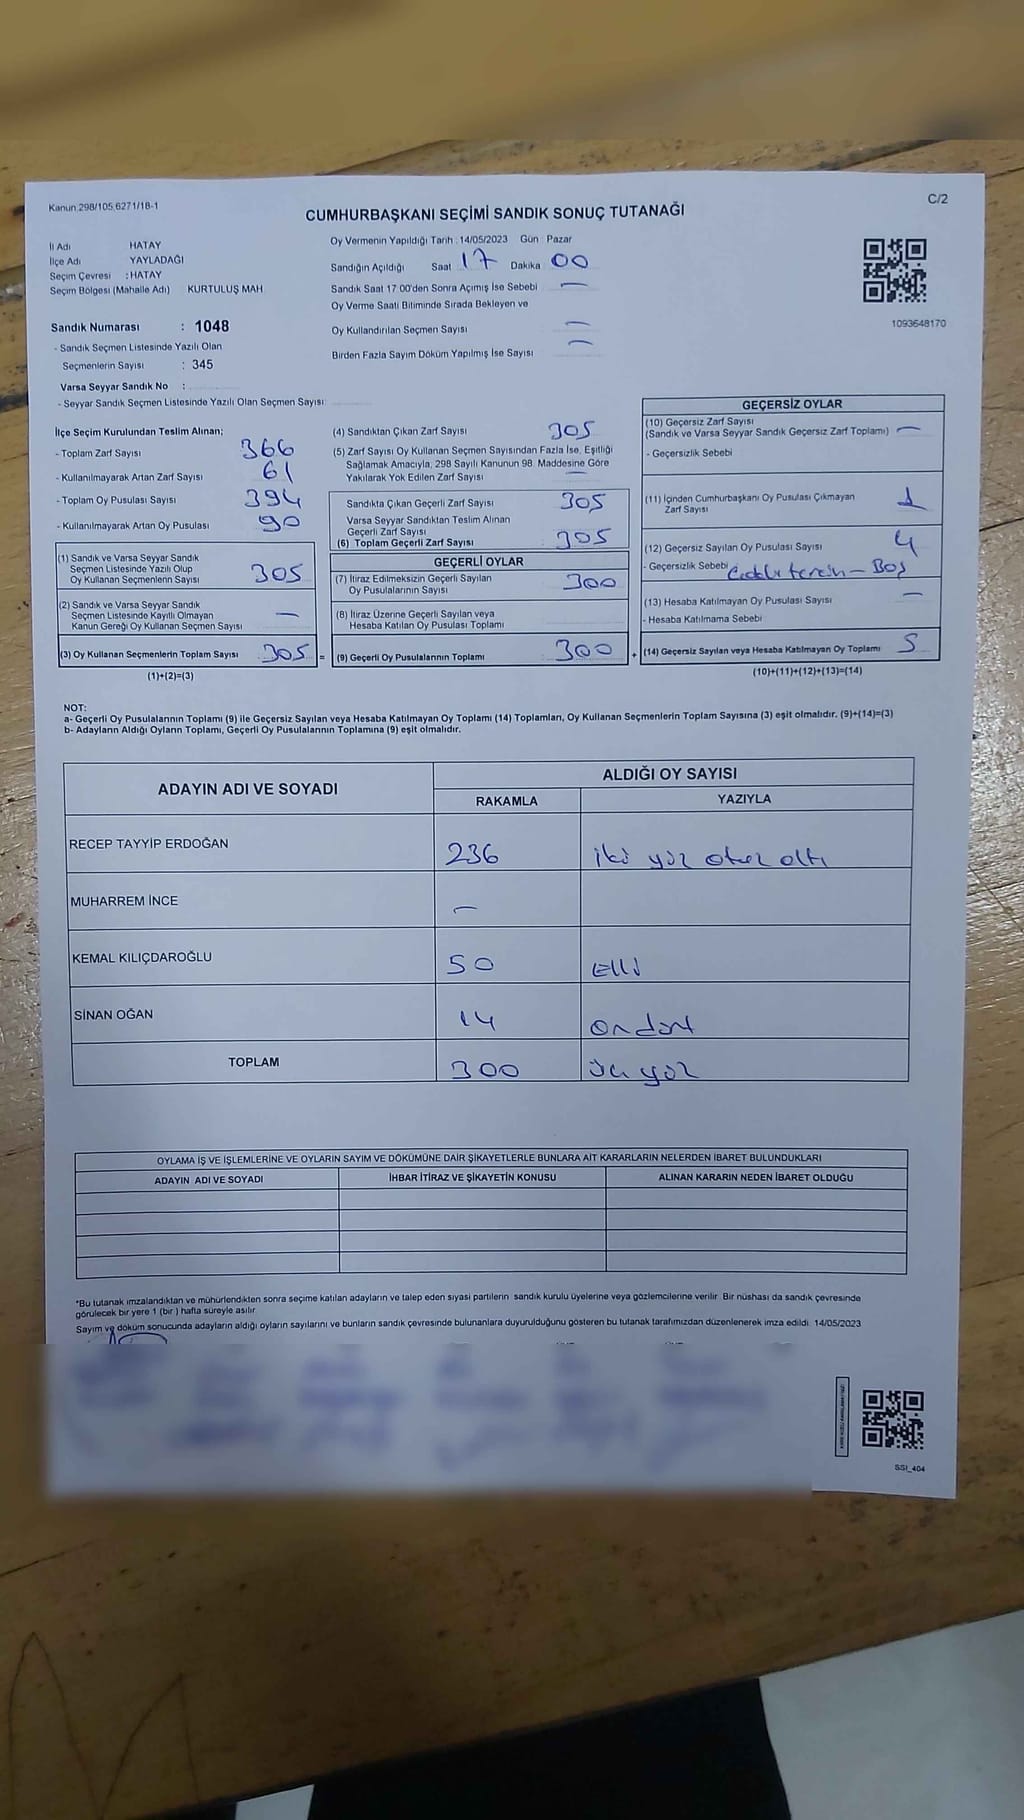 Kanun:298/105,6271/18-1
C/2
CUMHURBAŞKANI SEÇİMİ SANDIK SONUÇ TUTANAĞI
İl Adı HATAY
İlçe Adı YAYLADAĞI
Seçim Çevresi : HATAY
Seçim Bölgesi (Mahalle Adı) KURTULUŞ MAH
Oy Vermenin Yapıldığı Tarih : 14/05/2023 Gün Pazar
Sandığın Açıldığı Saat 17 Dakika 00
Sandık Saat 17 00'den Sonra Açımış İse Sebebi —
Oy Verme Saati Bitiminde Sırada Bekleyen ve
Oy Kullandırılan Seçmen Sayısı —
Birden Fazla Sayım Döküm Yapılmış İse Sayısı —
1093648170
Sandık Numarası : 1048
- Sandık Seçmen Listesinde Yazılı Olan
Seçmenlerin Sayısı : 345
Varsa Seyyar Sandık No :
- Seyyar Sandık Seçmen Listesinde Yazılı Olan Seçmen Sayısı:
İlçe Seçim Kurulundan Teslim Alınan;
- Toplam Zarf Sayısı 366
- Kullanılmayarak Artan Zarf Sayısı 61
- Toplam Oy Pusulası Sayısı 394
- Kullanılmayarak Artan Oy Pusulası 90
(1) Sandık ve Varsa Seyyar Sandık
Seçmen Listesinde Yazılı Olup
Oy Kullanan Seçmenlerin Sayısı 305
(2) Sandık ve Varsa Seyyar Sandık
Seçmen Listesinde Kayıtlı Olmayan
Kanun Gereği Oy Kullanan Seçmen Sayısı —
(3) Oy Kullanan Seçmenlerin Toplam Sayısı 305 =
(1)+(2)=(3)
(4) Sandıktan Çıkan Zarf Sayısı 305
(5) Zarf Sayısı Oy Kullanan Seçmen Sayısından Fazla İse, Eşitliği
Sağlamak Amacıyla, 298 Sayılı Kanunun 98. Maddesine Göre
Yakılarak Yok Edilen Zarf Sayısı —
Sandıkta Çıkan Geçerli Zarf Sayısı 305
Varsa Seyyar Sandıktan Teslim Alınan
Geçerli Zarf Sayısı
(6) Toplam Geçerli Zarf Sayısı 305
GEÇERLİ OYLAR
(7) İtiraz Edilmeksizin Geçerli Sayılan
Oy Pusulalarının Sayısı 300
(8) İtiraz Üzerine Geçerli Sayılan veya
Hesaba Katılan Oy Pusulası Toplamı
(9) Geçerli Oy Pusulalarının Toplamı 300 +
GEÇERSİZ OYLAR
(10) Geçersiz Zarf Sayısı
(Sandık ve Varsa Seyyar Sandık Geçersiz Zarf Toplamı) —
- Geçersizlik Sebebi
(11) İçinden Cumhurbaşkanı Oy Pusulası Çıkmayan
Zarf Sayısı 1
(12) Geçersiz Sayılan Oy Pusulası Sayısı 4
- Geçersizlik Sebebi tercih – Boş
(13) Hesaba Katılmayan Oy Pusulası Sayısı —
- Hesaba Katılmama Sebebi
(14) Geçersiz Sayılan veya Hesaba Katılmayan Oy Toplamı 5
(10)+(11)+(12)+(13)=(14)
NOT:
a- Geçerli Oy Pusulalarının Toplamı (9) ile Geçersiz Sayılan veya Hesaba Katılmayan Oy Toplamı (14) Toplamları, Oy Kullanan Seçmenlerin Toplam Sayısına (3) eşit olmalıdır. (9)+(14)=(3)
b- Adayların Aldığı Oyların Toplamı, Geçerli Oy Pusulalarının Toplamına (9) eşit olmalıdır.
ADAYIN ADI VE SOYADI ALDIĞI OY SAYISI
RAKAMLA YAZIYLA
RECEP TAYYİP ERDOĞAN 236 iki yüz otuz altı
MUHARREM İNCE —
KEMAL KILIÇDAROĞLU 50 Elli
SİNAN OĞAN 14 on dört
TOPLAM 300 üç yüz
OYLAMA İŞ VE İŞLEMLERİNE VE OYLARIN SAYIM VE DÖKÜMÜNE DAİR ŞİKAYETLERLE BUNLARA AİT KARARLARIN NELERDEN İBARET BULUNDUKLARI
ADAYIN ADI VE SOYADI İHBAR İTİRAZ VE ŞİKAYETİN KONUSU ALINAN KARARIN NEDEN İBARET OLDUĞU
*Bu tutanak imzalandıktan ve mühürlendikten sonra seçime katılan adayların ve talep eden siyasi partilerin sandık kurulu üyelerine veya gözlemcilerine verilir. Bir nüshası da sandık çevresinde
görülecek bir yere 1 (bir ) hafta süreyle asılır
Sayım ve döküm sonucunda adayların aldığı oyların sayılarını ve bunların sandık çevresinde bulunanlara duyurulduğunu gösteren bu tutanak tarafımızdan düzenlenerek imza edildi. 14/05/2023
SSI_404